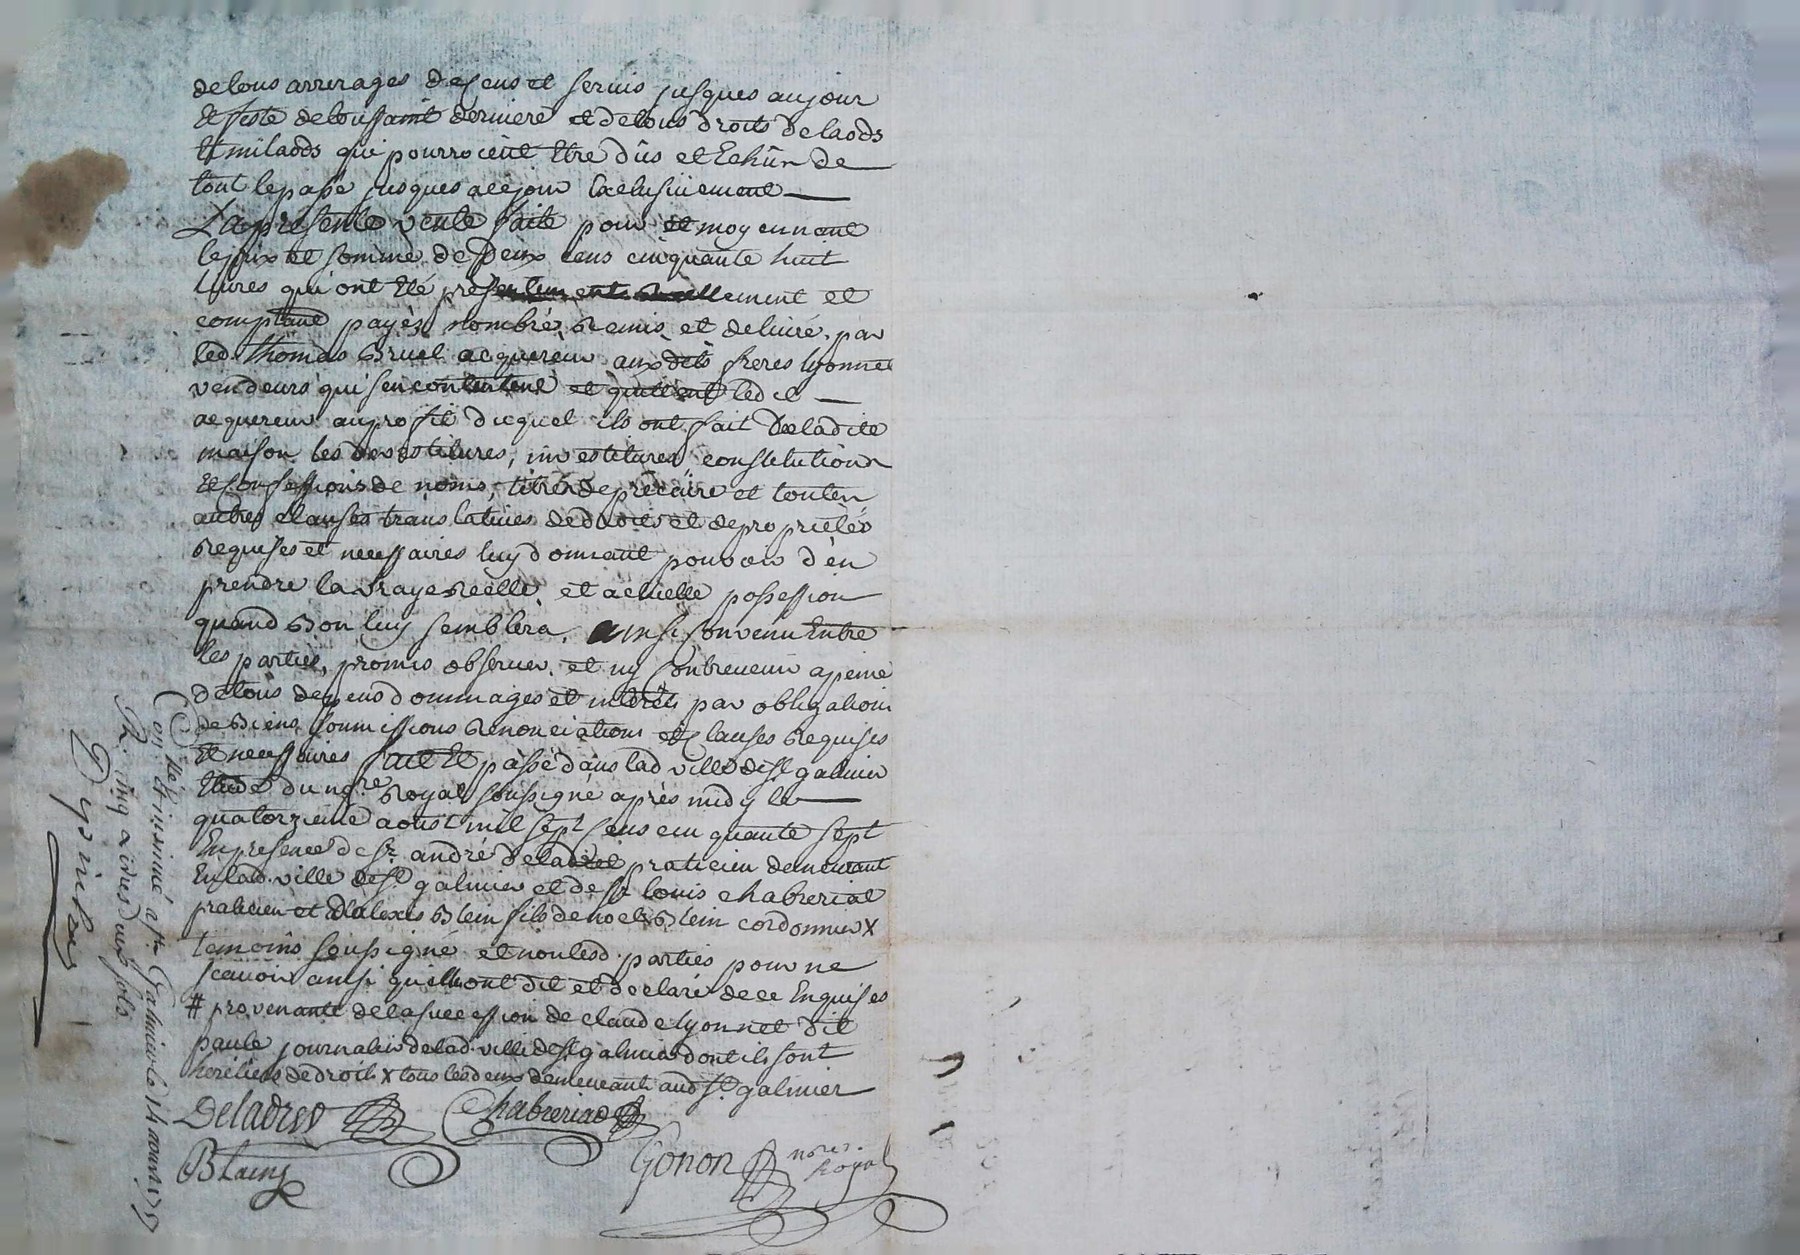 de tous arrerages de cens et servis jusques au jour
et feste de toussaint derniere et de tous droits de laods
et milaods qui pourroient etre dûs et Echûs de
tout le passé jusques a ce jour Exclusivement
La presente vente faite pour et moyennant
le prix et somme de Deux cens cinquante huit
livres qui ont eté presentement reellement et
comptant payès, nombrés, remis, et delivré, par
led. thomas Bruel acquereur aux dits freres lyonnet
vendeurs qui s'en contentent et quittent led
acquereur au profit duquel ils ont fait De ladite
maison les devestitures, investitures constitutions
et Confessions de noms, titres de precaire et toutes
autres clauses translatives de droits et de proprietés
requises et necessaires luy donnant pouvoir d'en
prendre la vraye reelle, et actuelle possession
quand Bon luy semblera, ainsi Convenu Entre
les parties, promis observer, et ny Contrevenir a peine
de tous depens dommages et interets par obligation
de Biens, soumissions renonciations et Clauses requises
et necessaires fait et passé dans lad ville de st galmier
Etude du nore. Royal soussigné après midy le
quatorzieme aoust mil sept Cens cinquante sept
En presence de sr. andré Deladret praticien demeurant
En lad. ville de st. galmier et de sr. louis chabreriat
praticien et d'alexis Blein fils de noel Blein cordonnier X
temoins soussigné et non lesd. parties pour ne
scavoir ainsi quilsont dit et declaré de ce Enquises
# provenante de la succession de claude lyonnet dit
paule journalier de lad. ville de st. galmier dont ils sont
heretiers de droit X tous les deux demeurants aud st. galmier
Deladret Chabreriat
Blein Gonon nore. Royal
Con.lé et insinué a st. Galmier le 14 aoust 1757
R. cinq livres deux sols